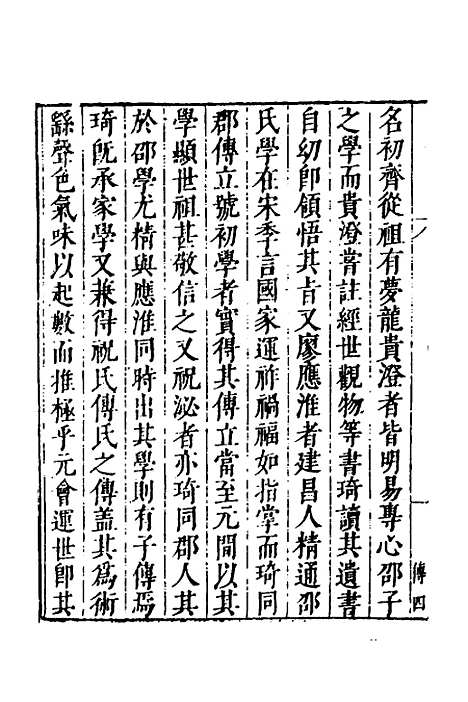 名初齊從祖有夢龍貴澄者皆明易專心邵子
之學而貴澄嘗註經世觀物等書琦讀其遺書
自幼卽領悟其旨又廖應淮者建昌人精通邵
氏學在宋季言國家運祚禍福如指掌而琦同
郡傳立號初學者實得其傳立當至元間以其
學顯世祖甚敬信之又祝泌者亦琦同郡人其
於邵學尤精與應淮同時出其學則有子傳焉
琦旣承家學又兼得祝氏傳氏之傳蓋其爲術
繇聲色氣味以起數而推極乎元會運世卽其
傳四